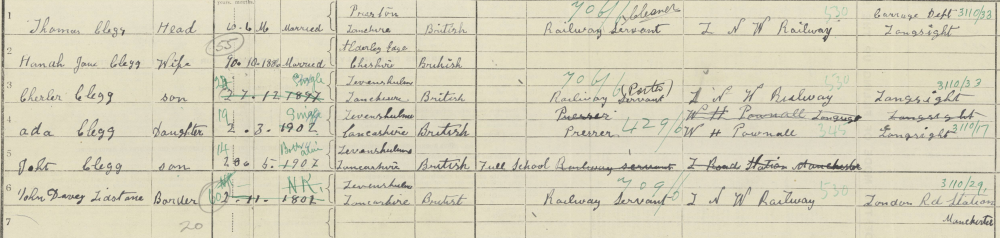 1 Thomas Clegg Head Married Preston Lancshire British Railway Servant (Cleaner) L N W Railway 530 Carrage Dept 3110/33 Longsight
2 Hanah Jane Clegg Wife 55 Married Alderley Edge Cheshire British
3 Charles Clegg son 24 27.12.1897 Single Levenshulme Lancshire British 706/6 Railway Servant (Porter) L N W Railway 530 3110/33 Longsight
Presser W H Pownall Longsight Longsight
4 ada Clegg Daughter 19 2.3.1902 Single Levenshulme Lancashire British Presser 429/0 W H Pownall 345 Longsight 3110/17
5 Clegg son 14 5.1907 Both alive Levenshulme Lancashire British Full School Railway servant L Road Station Manchester
6 John Davey Lidstone Border NK Levenshulme Lancashire British 709/0 Railway Servant L N W Railway 530 3110/29 London Rd Station
7 20 Manchester